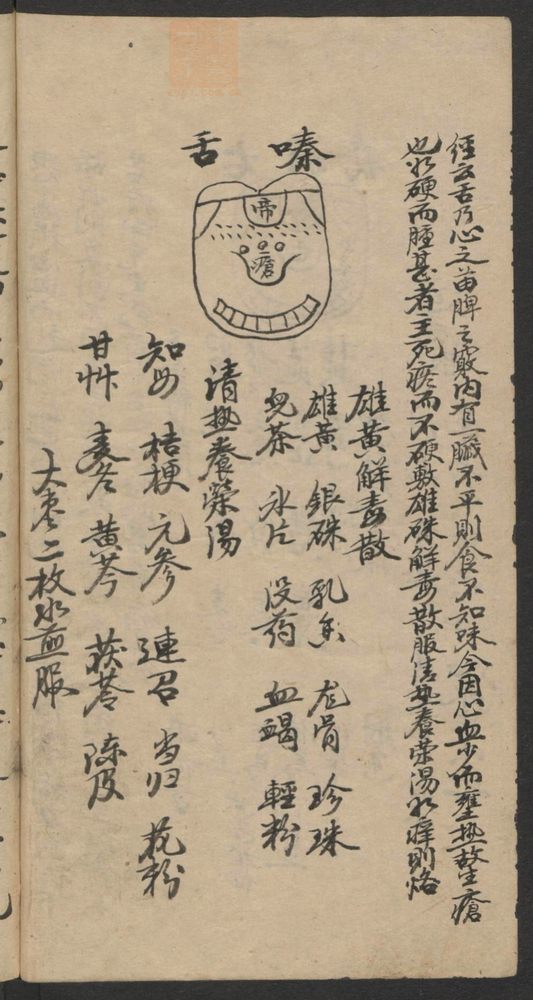 嗪舌
帝
瘡
經云舌乃心之苗脾之竅內有一臟不平則食不知味今因心血少而壅热故生瘡
也如硬而腫甚者主死瘀而不硬敷雄硃解毒散服清热養荣湯如痒則烙
雄黄解毒散
雄黄 銀硃 乳香 龙骨 珍珠
兒茶 氷片 没药 血竭 輕粉
清热養荣湯
知母 桔梗 元参 連召 当归 花粉
甘艸 麦冬 黄芩 茯苓 陈皮
大枣二枚水煎服